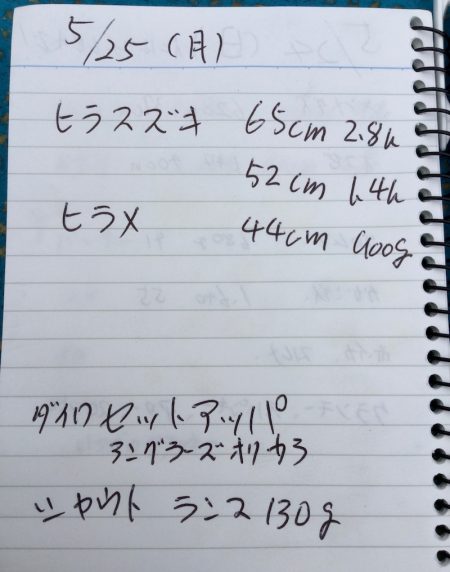 5/25(月)
ヒラスズキ 65cm 2.8k
52cm 1.4k
ヒラメ 44cm 900g
ダイワ セットアッパー
アングラーズオリカラ
シャウト ランス 130g